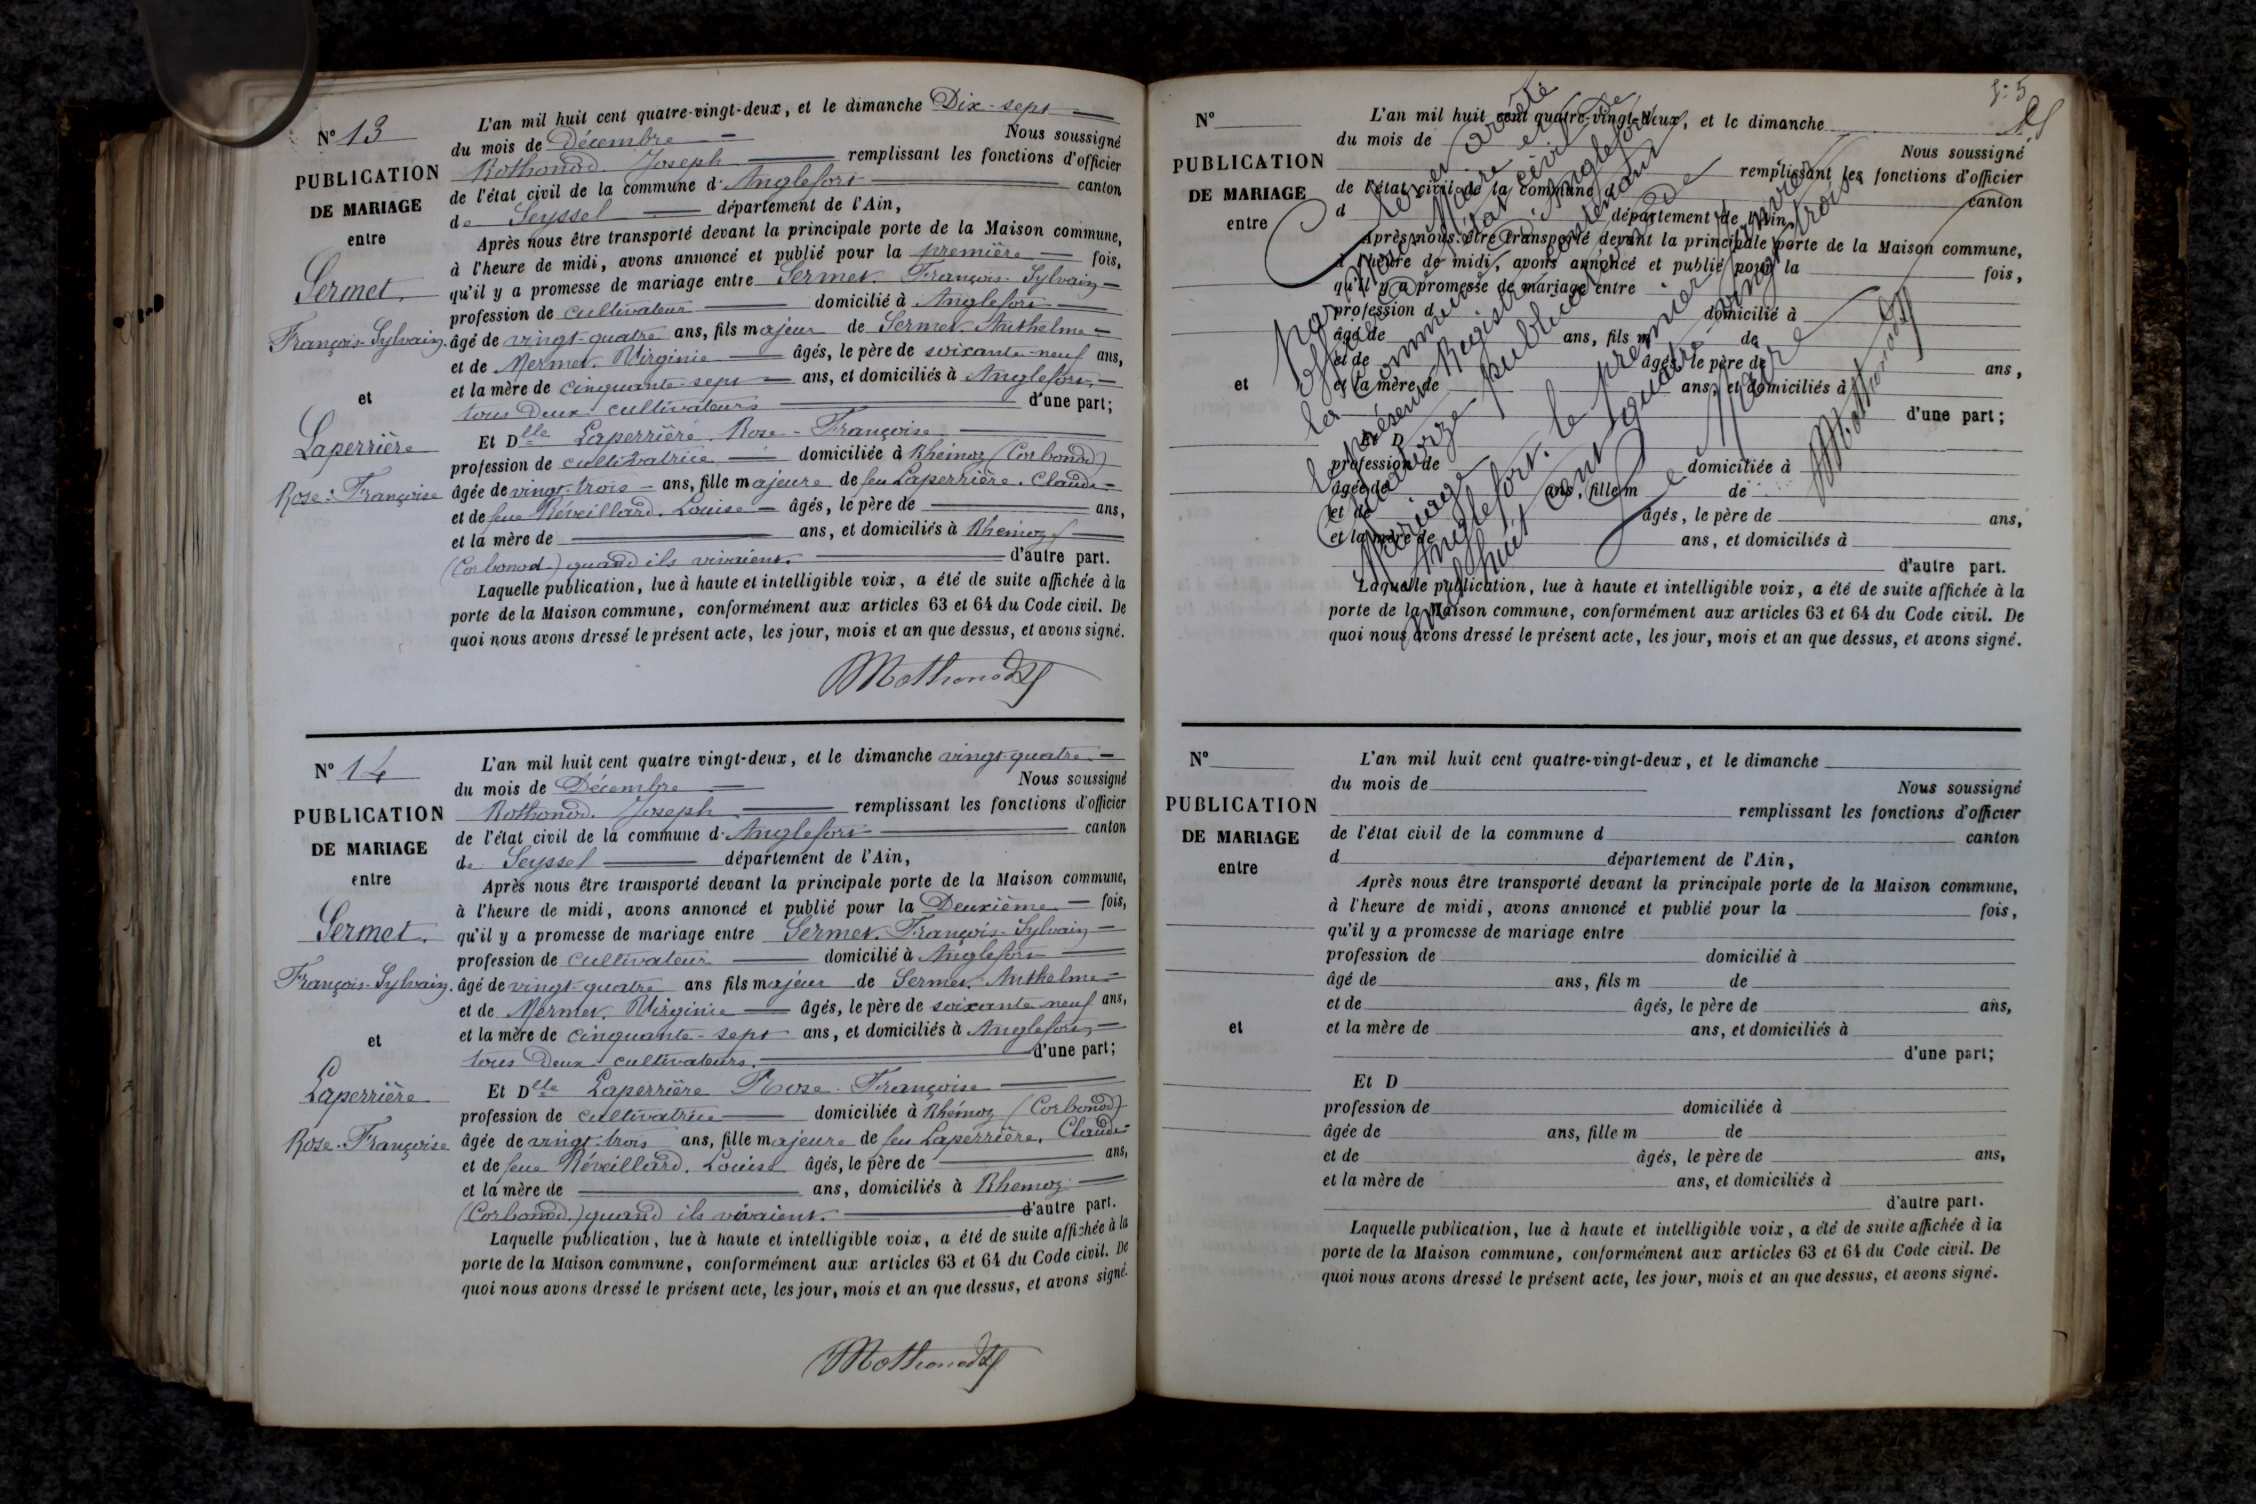 N° 13
PUBLICATION
DE MARIAGE
entre
Sermet
François-Sylvain.
et
Laperrière
Rose-Françoise
L'an mil huit cent quatre-vingt-deux, et le dimanche Dix-sept
du mois de Décembre Nous soussigné
Mothonod. Joseph remplissant les fonctions d'officier
de l'état civil de la commune d'Anglefort canton
de Seyssel département de l'Ain,
Après nous être transporté devant la principale porte de la Maison commune,
à l'heure de midi, avons annoncé et publié pour la première fois,
qu'il y a promesse de mariage entre Sermet. François-Sylvain
profession de cultivateur domicilié à Anglefort
âgé de vingt-quatre ans, fils majeur de Sermet. Anthelme
et de Mermet. Virginie âgés, le père de soixante-neuf ans,
et la mère de cinquante-sept ans, et domiciliés à Anglefort,
tous Deux cultivateurs d'une part;
Et Dlle Laperrière. Rose-Françoise
profession de cultivatrice domiciliée à Rhémoz (Corbonod)
âgée de vingt-trois ans, fille majeure de feu Laperrière. Claude
et de feue Réveillard. Louise âgés, le père de ans,
et la mère de ans, et domiciliés à Rhemoz
(Corbonod) quand ils vivaient. d'autre part.
Laquelle publication, lue à haute et intelligible voix, a été de suite affichée à la
porte de la Maison commune, conformément aux articles 63 et 64 du Code civil. De
quoi nous avons dressé le présent acte, les jour, mois et an que dessus, et avons signé.
Mothonod
N° 14
PUBLICATION
DE MARIAGE
entre
Sermet.
François-Sylvain.
et
Laperrière
Rose-Françoise
L'an mil huit cent quatre vingt-deux, et le dimanche vingt-quatre
du mois de Décembre Nous soussigné
Mothonod. Joseph remplissant les fonctions d'officier
de l'état civil de la commune d'Anglefort canton
de Seyssel département de l'Ain,
Après nous être transporté devant la principale porte de la Maison commune,
à l'heure de midi, avons annoncé et publié pour la Deuxième fois,
qu'il y a promesse de mariage entre Sermet. François-Sylvain
profession de cultivateur domicilié à Anglefort
âgé de vingt-quatre ans fils majeur de Sermet. Anthelme
et de Mermet. Virginie âgés, le père de soixante-neuf ans,
et la mère de cinquante-sept ans, et domiciliés à Anglefort,
tous Deux cultivateurs. d'une part;
Et Dlle Laperrière Rose-Françoise
profession de cultivatrice domiciliée à Rhémoz (Corbonod)
âgée de vingt-trois ans, fille majeure de feu Laperrière. Claude
et de feue Réveillard. Louise âgés, le père de ans,
et la mère de ans, domiciliés à Rhemoz
(Corbonod.) quand ils vivaient. d'autre part.
Laquelle publication, lue à haute et intelligible voix, a été de suite affichée à la
porte de la Maison commune, conformément aux articles 63 et 64 du Code civil. De
quoi nous avons dressé le présent acte, les jour, mois et an que dessus, et avons signé.
Mothonod
N°
PUBLICATION
DE MARIAGE
entre
et
L'an mil huit cent quatre-vingt-deux, et le dimanche
du mois de Nous soussigné
remplissant les fonctions d'officier
de l'état civil de la commune d canton
d département de l'Ain,
Après nous être transporté devant la principale porte de la Maison commune,
à l'heure de midi, avons annoncé et publié pour la fois,
qu'il y a promesse de mariage entre
profession d domicilié à
âgé de ans, fils m de
et de âgés, le père de ans,
et la mère de ans, et domiciliés à
d'une part;
Et D
profession de domiciliée à
âgée de ans, fille m de
et de âgés, le père de ans,
et la mère de ans, et domiciliés à
d'autre part.
Laquelle publication, lue à haute et intelligible voix, a été de suite affichée à la
porte de la Maison commune, conformément aux articles 63 et 64 du Code civil. De
quoi nous avons dressé le présent acte, les jour, mois et an que dessus, et avons signé.
Clos et arrêté
par nous Maire et
officier de l'état civil de
la Commune d'Anglefort
le présent Registre contenant
Quatorze publications de
Mariage
Anglefort. le premier Janvier
mil huit cent quatre vingt trois.
Le Maire
Mothonod
N°
PUBLICATION
DE MARIAGE
entre
et
L'an mil huit cent quatre-vingt-deux, et le dimanche
du mois de Nous soussigné
remplissant les fonctions d'officier
de l'état civil de la commune d canton
d département de l'Ain,
Après nous être transporté devant la principale porte de la Maison commune,
à l'heure de midi, avons annoncé et publié pour la fois,
qu'il y a promesse de mariage entre
profession de domicilié à
âgé de ans, fils m de
et de âgés, le père de ans,
et la mère de ans, et domiciliés à
d'une part;
Et D
profession de domiciliée à
âgée de ans, fille m de
et de âgés, le père de ans,
et la mère de ans, et domiciliés à
d'autre part.
Laquelle publication, lue à haute et intelligible voix, a été de suite affichée à la
porte de la Maison commune, conformément aux articles 63 et 64 du Code civil. De
quoi nous avons dressé le présent acte, les jour, mois et an que dessus, et avons signé.